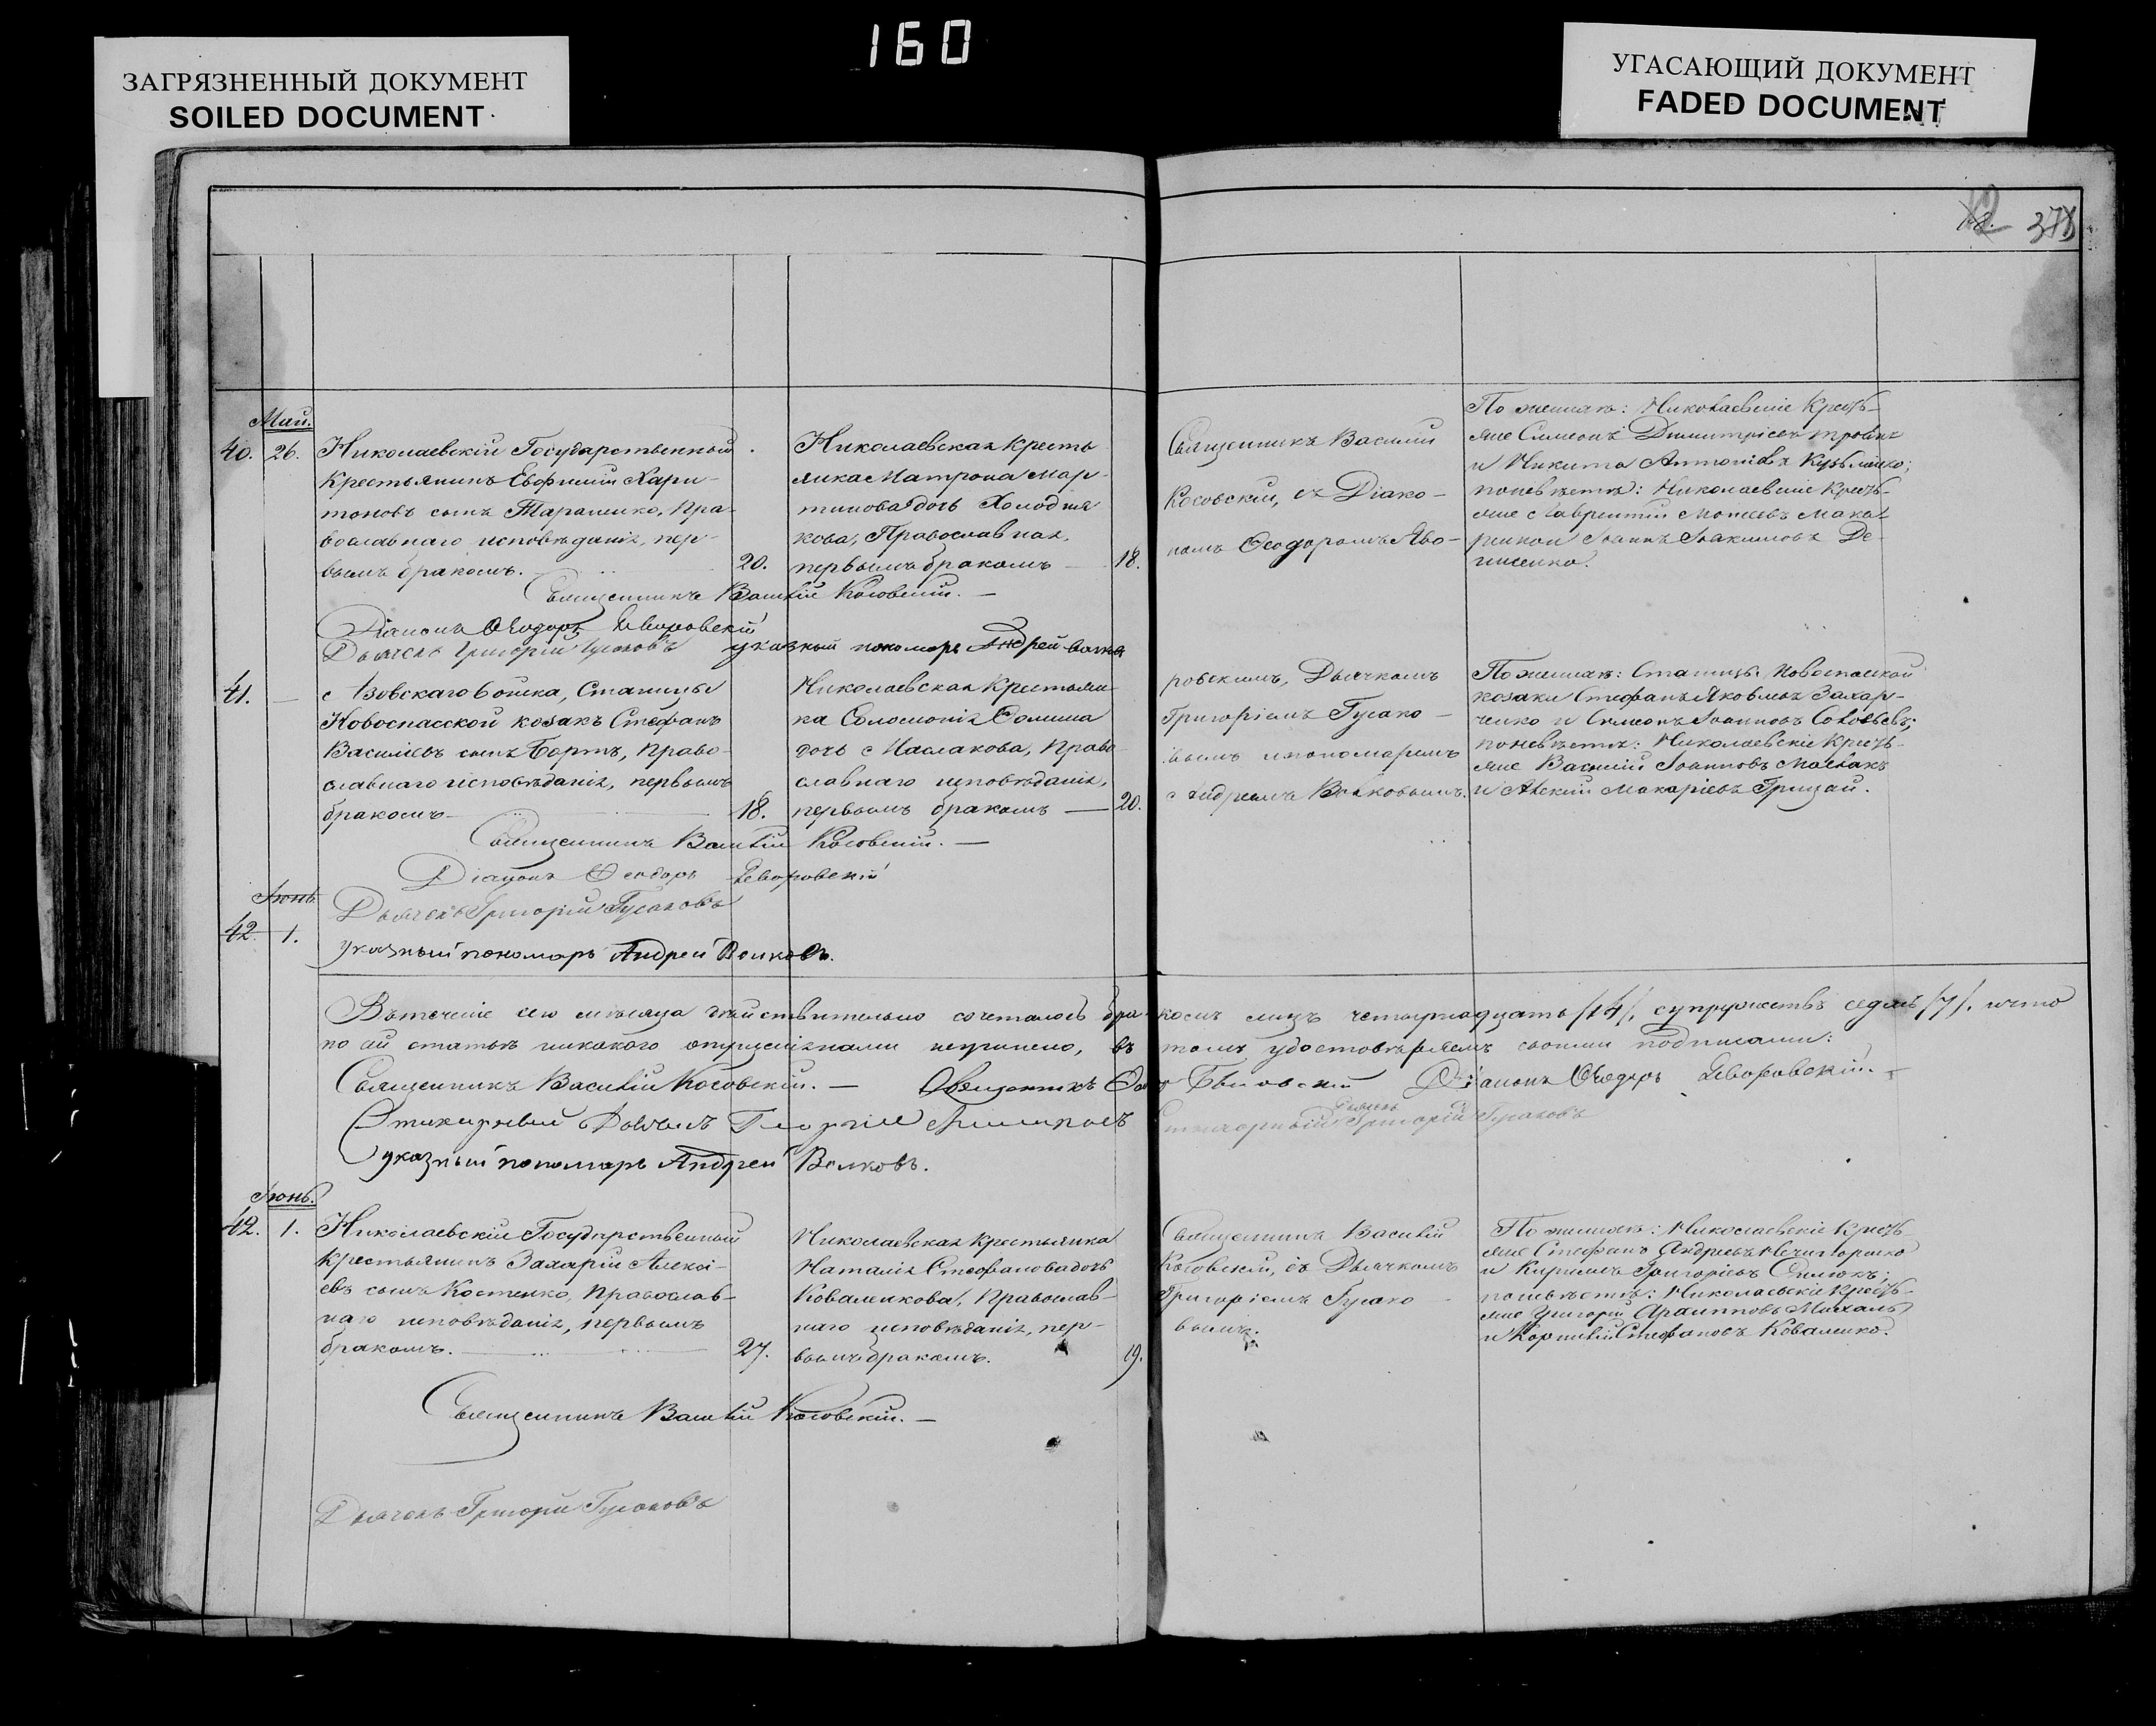 160
ЗАГРЯЗНЕННЫЙ ДОКУМЕНТ
SOILED DOCUMENT
УГАСАЮЩИЙ ДОКУМЕНТ
FADED DOCUMENT
Май.
40. 26. Николаевскій Государственный
Крестьянинъ Евфимій Хари-
тоновъ сынъ Тараненко, Пра-
вославнаго исповѣданія, пер-
вымъ бракомъ. 20.
Николаевская кресть
янка Матрона Мар-
тинова дочь Холодня
кова, Православная,
первымъ бракомъ 18.
Священникъ Василій
Косовскій, съ Діако-
номъ Ѳеодоромъ Яво-
По женихѣ: Николаевскіе Кресть-
яне Симеонъ Димитріевъ
и Никита Антоніевъ Кузьменко;
по невѣстѣ: Николаевскіе Кресть-
яне Лаврентій Моисеевъ
Іоаннъ Іоакимовъ Де-
нисенко.
Священникъ Василій Косовскій.
Діаконъ Ѳеодоръ Яворовскій
Дьячекъ Григорій Гусаковъ указный пономарь Андрей Волковъ
41. — Азовскаго войска, Станицы
Новоспасской козакъ Стефанъ
Васильевъ сынъ Бортъ, Право-
славнаго исповѣданія, первымъ
бракомъ 18.
Николаевская Крестьян-
ка Соломонія Фомина
дочь Маслакова, Право-
славнаго исповѣданія,
первымъ бракомъ — 20.
ровскимъ, Дьячкомъ
Григоріемъ Гусако-
вымъ и пономаремъ
Андреемъ Волковымъ.
По женихѣ: Станицы Новоспаской
козаки Стефанъ Яковлевъ Захар-
ченко и Симеонъ Іоанновъ Соловьевъ;
по невѣстѣ: Николаевскіе Кресть-
яне Василій Іоанновъ Маслакъ
и Алексій Макаріевъ Грицай.
Священникъ Василій Косовскій.
Діаконъ Ѳеодоръ Яворовскій
Іюнь
Дьячекъ Григорій Гусаковъ
42. 1.
указный пономарь Андрей Волковъ.
Въ теченіе сего мѣсяца дѣйствительно сочеталось бракомъ лицъ четырнадцать /14/, супружествъ седмь /7/, и что
по сей статьѣ никакого опущенія нами неучинено, въ томъ удостовѣряемъ своими подписами:
Священникъ Василій Косовскій. — Священникъ Діаконъ Ѳеодоръ Яворовскій.
Стихарный Дьячекъ Георгій
Дьячекъ
Стихарный Григорій Гусаковъ
указный пономарь Андрей Волковъ.
Іюнь.
42. 1. Николаевскій Государственный
Крестьянинъ Захарій Алексі-
евъ сынъ Костенко, Православ-
наго исповѣданія, первымъ
бракомъ. 27.
Николаевская крестьянка
Наталія Стефанова дочь
Коваленкова, Православ-
наго исповѣданія, пер-
вымъ бракомъ. 19.
Священникъ Василій
Косовскій, съ Дьячкомъ
Григоріемъ Гусако-
вымъ.
По женихѣ: Николаевскіе Кресть-
яне Стефанъ Андреевъ Нечипоренко
и Кириллъ Григоріевъ
по невѣстѣ: Николаевскіе Кресть-
яне Григорій
и Корнилій Стефановъ Коваленко.
Священникъ Василій Косовскій. —
Дьячекъ Григорій Гусаковъ